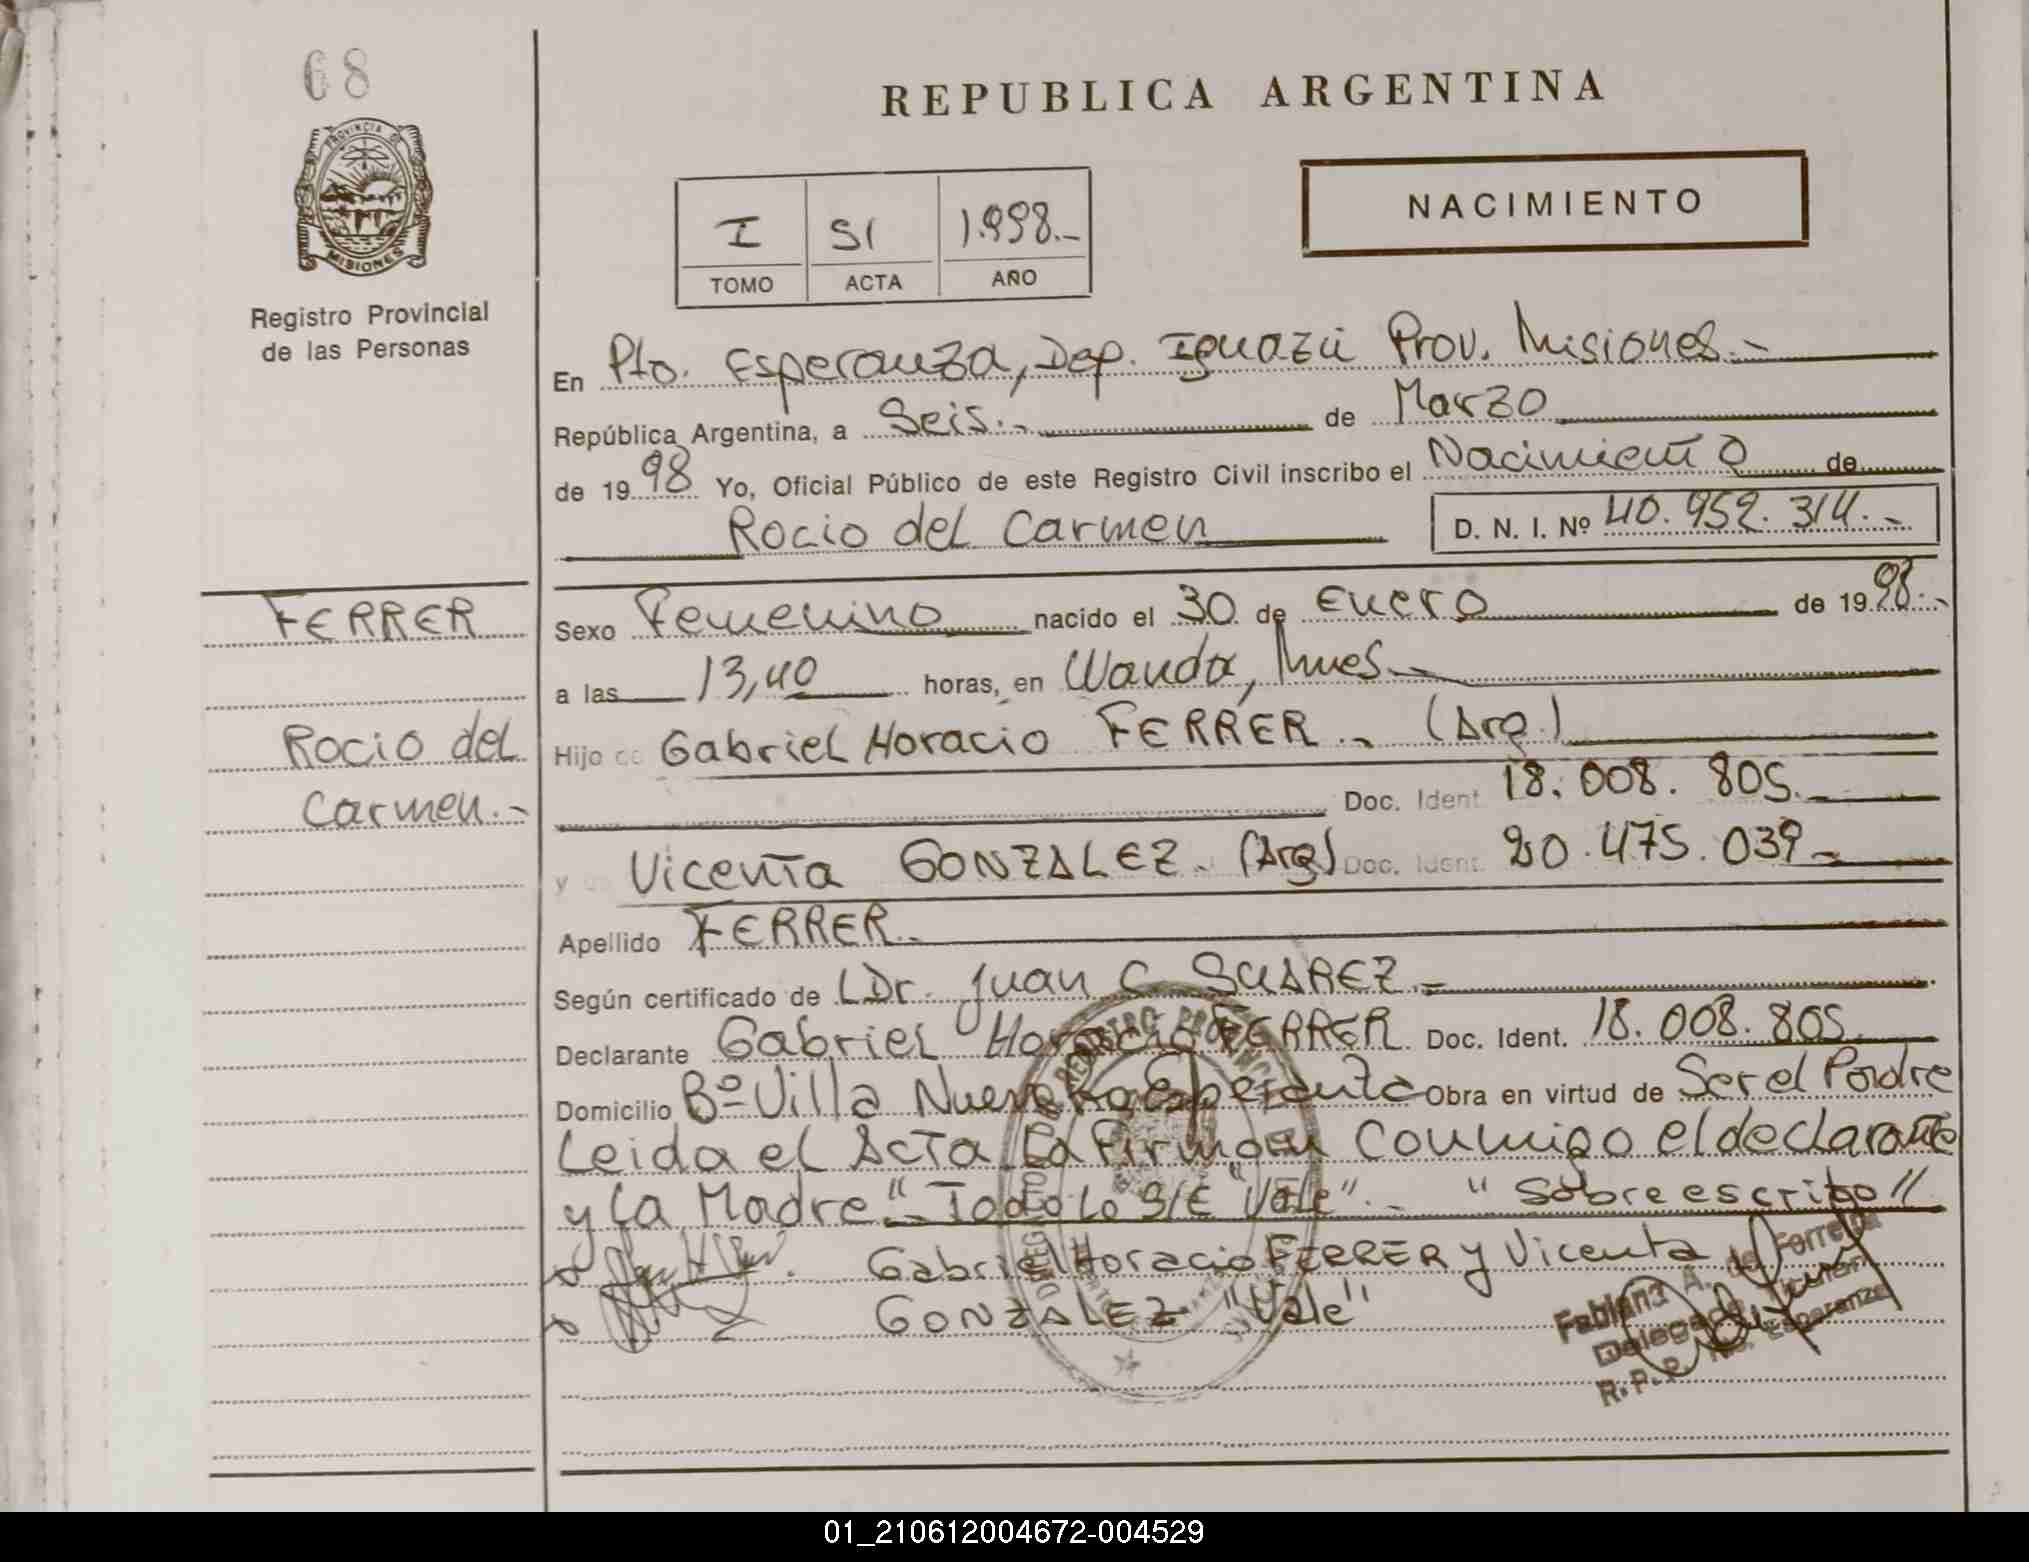 68
REPUBLICA ARGENTINA
PROVINCIA DE MISIONES
NACIMIENTO
I 51 1.998.-
TOMO ACTA AÑO
Registro Provincial
de las Personas
En Pto. Esperanza, Dep. Iguazú Prov. Misiones.-
República Argentina, a Seis.- de Marzo
de 1998 Yo, Oficial Público de este Registro Civil inscribo el Nacimiento de
Rocio del Carmen D. N. I. Nº 40.952.314.-
FERRER
Sexo Femenino nacido el 30 de Enero de 1998.-
a las 13,40 horas, en Wanda, Mnes.-
Rocio del
Carmen.-
Hijo de Gabriel Horacio FERRER.- (Arg.)
Doc. Ident. 18.008.805.-
y de Vicenta GONZALEZ.- (Arg) Doc. Ident. 20.475.039.-
Apellido FERRER.-
Según certificado de LDr. Juan C. SUAREZ.-
Declarante Gabriel Horacio FERRER. Doc. Ident. 18.008.805.
Domicilio Bº Villa Nueva Esperanza Obra en virtud de Ser el Padre
Leida el Acta La Firman Conmigo el declarante
y La Madre "- Todo Lo S/E "Vale".- "Sobre escrito"
Gabriel Horacio FERRER y Vicenta
GONZALEZ "Vale"
Fabiana A. de Ferreira
Delegada Titular
R.P.P. Pto. Esperanza
01_210612004672-004529